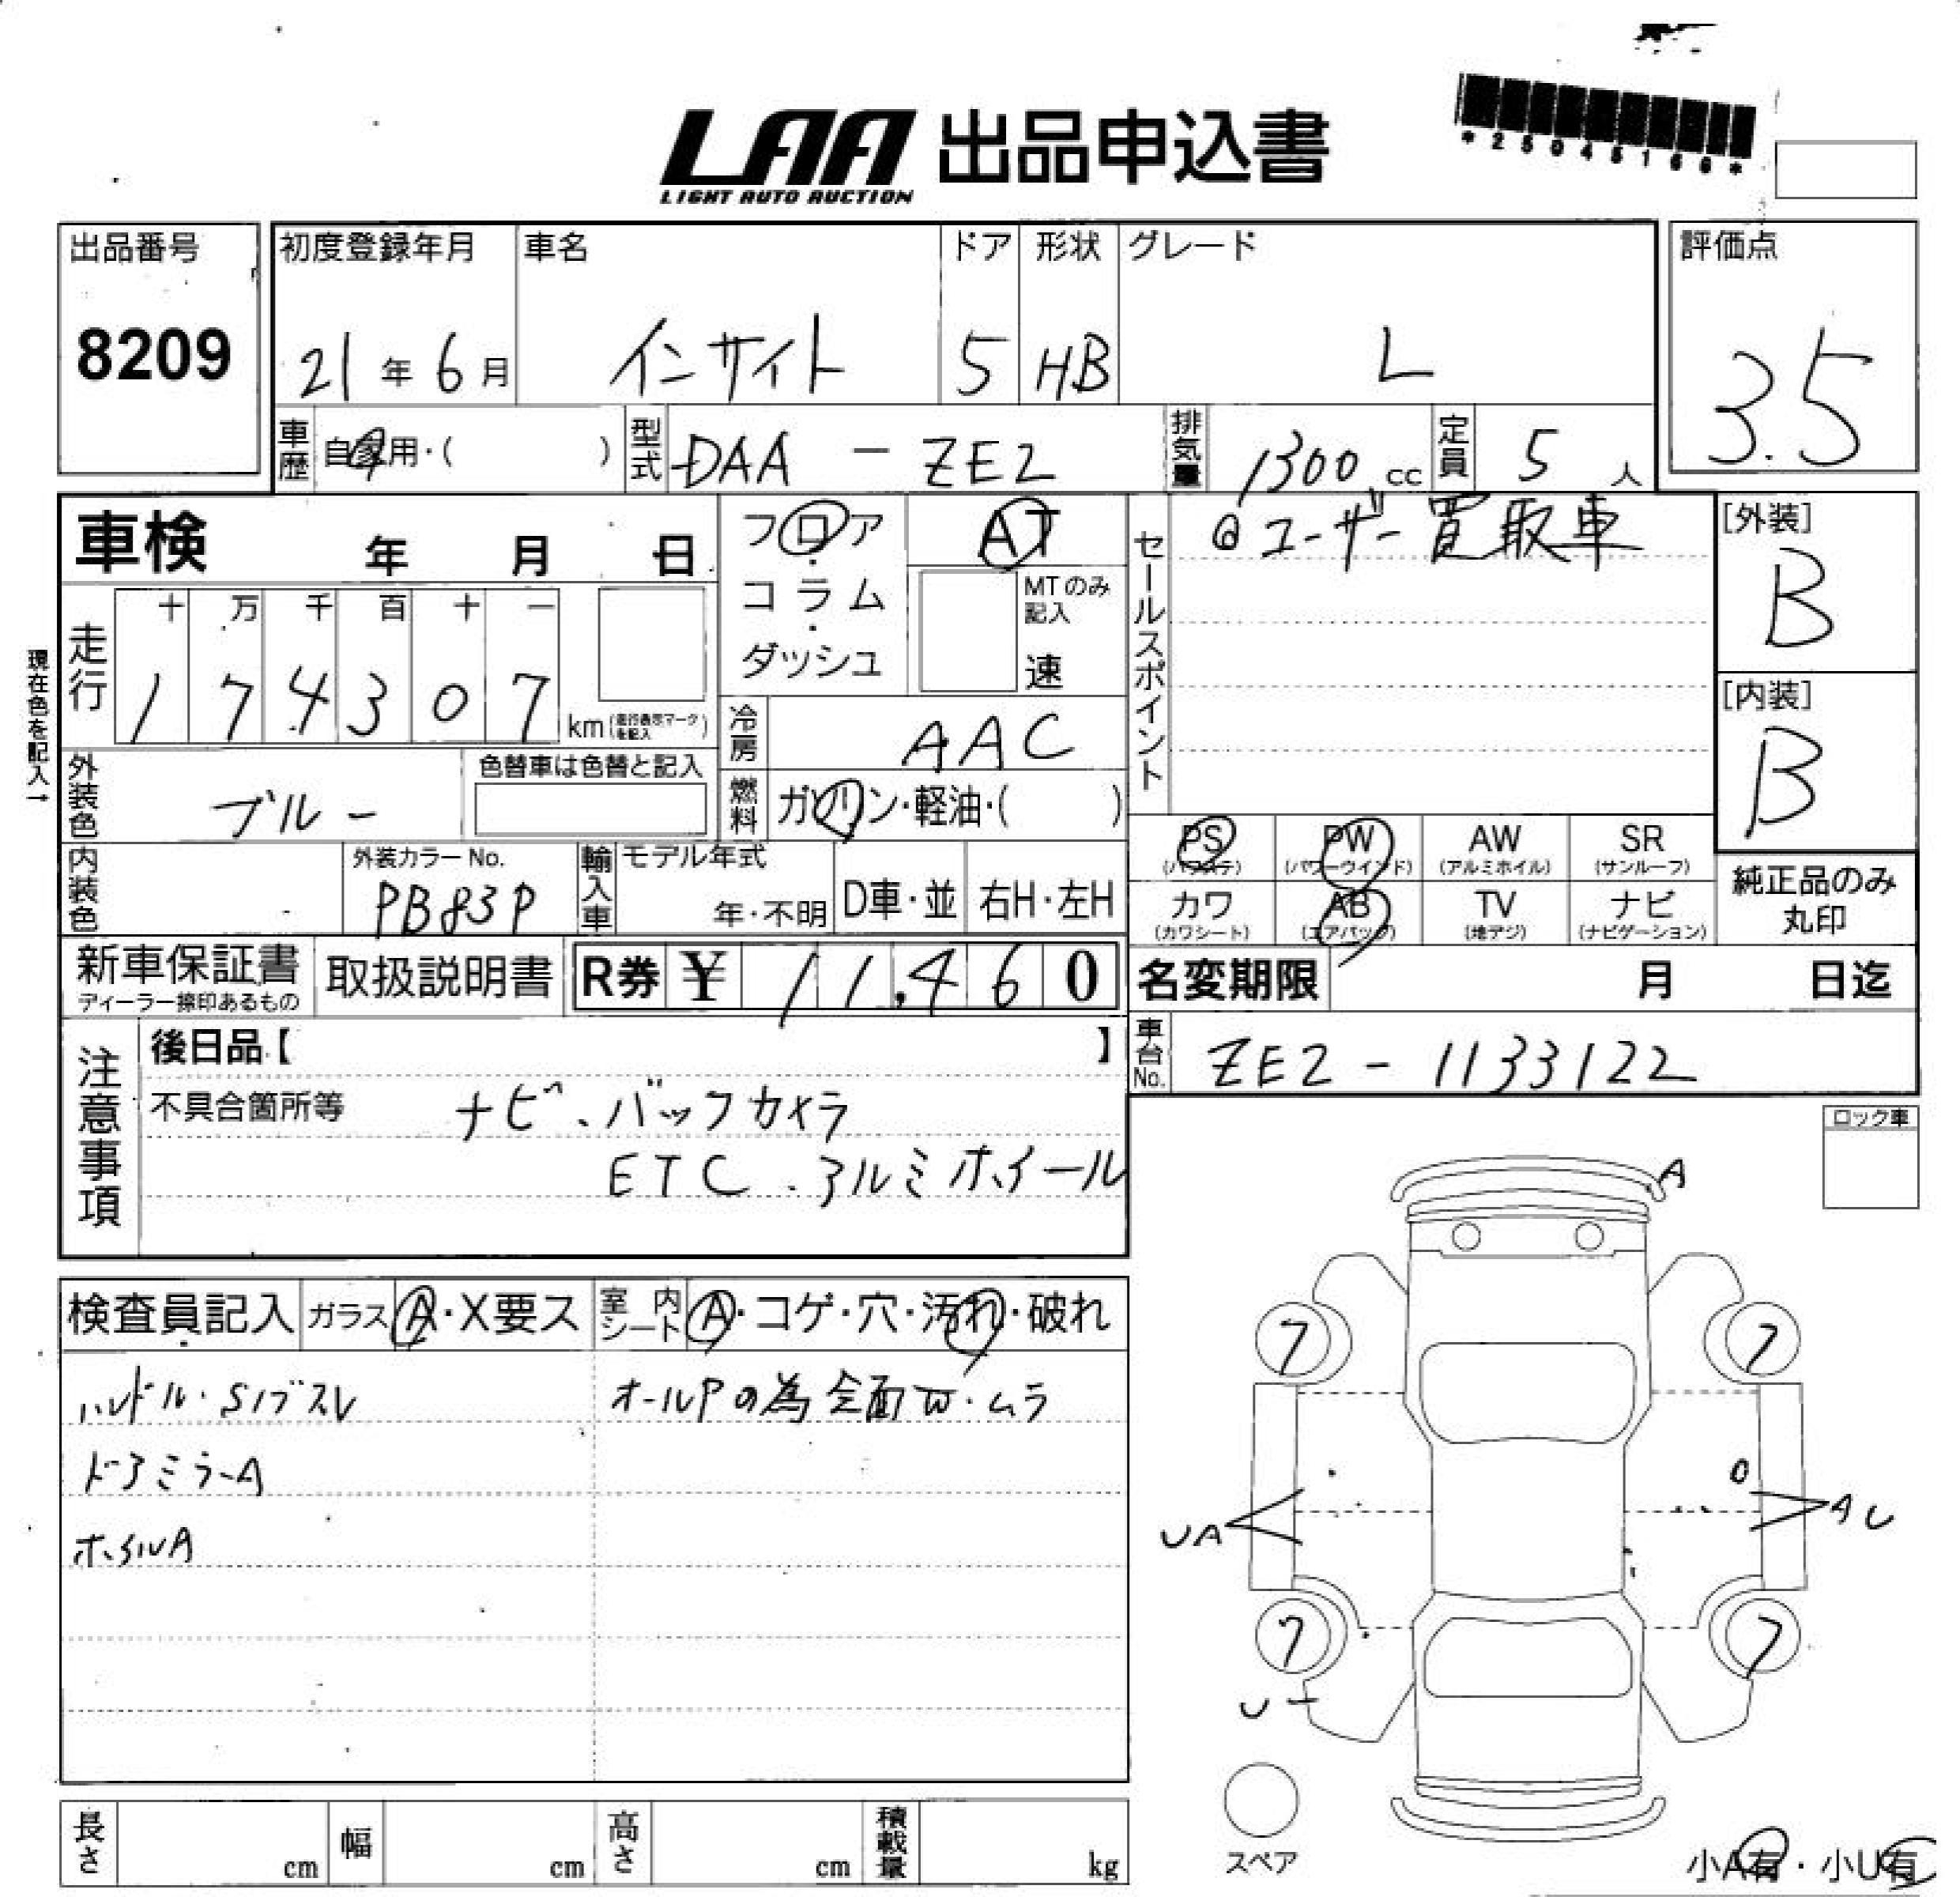 LAA 出品申込書
LIGHT AUTO AUCTION
*25045166*
出品番号
8209
初度登録年月
21年6月
車名
インサイト
ドア
5
形状
HB
グレード
L
評価点
3.5
車歴
自家用・( )
型式
DAA - ZE2
排気量
1300 cc
定員
5人
車検 年 月 日
フロア・コラム・ダッシュ
AT
MTのみ記入
速
セールスポイント
@ユーザー買取車
[外装]
B
[内装]
B
現在色を記入→
走行
十 万 千 百 十 一
1 7 4 3 0 7 km (走行表示マークを記入)
冷房
AAC
外装色
ブルー
色替車は色替と記入
燃料
ガソリン・軽油・( )
PS (パワステ)
PW (パワーウインド)
AW (アルミホイル)
SR (サンルーフ)
カワ (カワシート)
AB (エアバッグ)
TV (地デジ)
ナビ (ナビゲーション)
純正品のみ丸印
内装色
外装カラーNo.
PB83P
輸入車
モデル年式
年・不明
D車・並
右H・左H
新車保証書
ディーラー捺印あるもの
取扱説明書
R券 ¥ 11,460
名変期限 月 日迄
車台No.
ZE2 - 1133122
注意事項
後日品【 】
不具合箇所等
ナビ、バックカメラ
ETC、アルミホイール
ロック車
検査員記入
ガラス A・X要ス
室内シート A・コゲ・穴・汚れ・破れ
ハンドル・Sノブスレ
オールPの為全面W・ムラ
ドアミラーA
ホイルA
A
7
7
UA
AU
7
7
U
スペア
小A有・小U有
長さ cm
幅 cm
高さ cm
積載量 kg